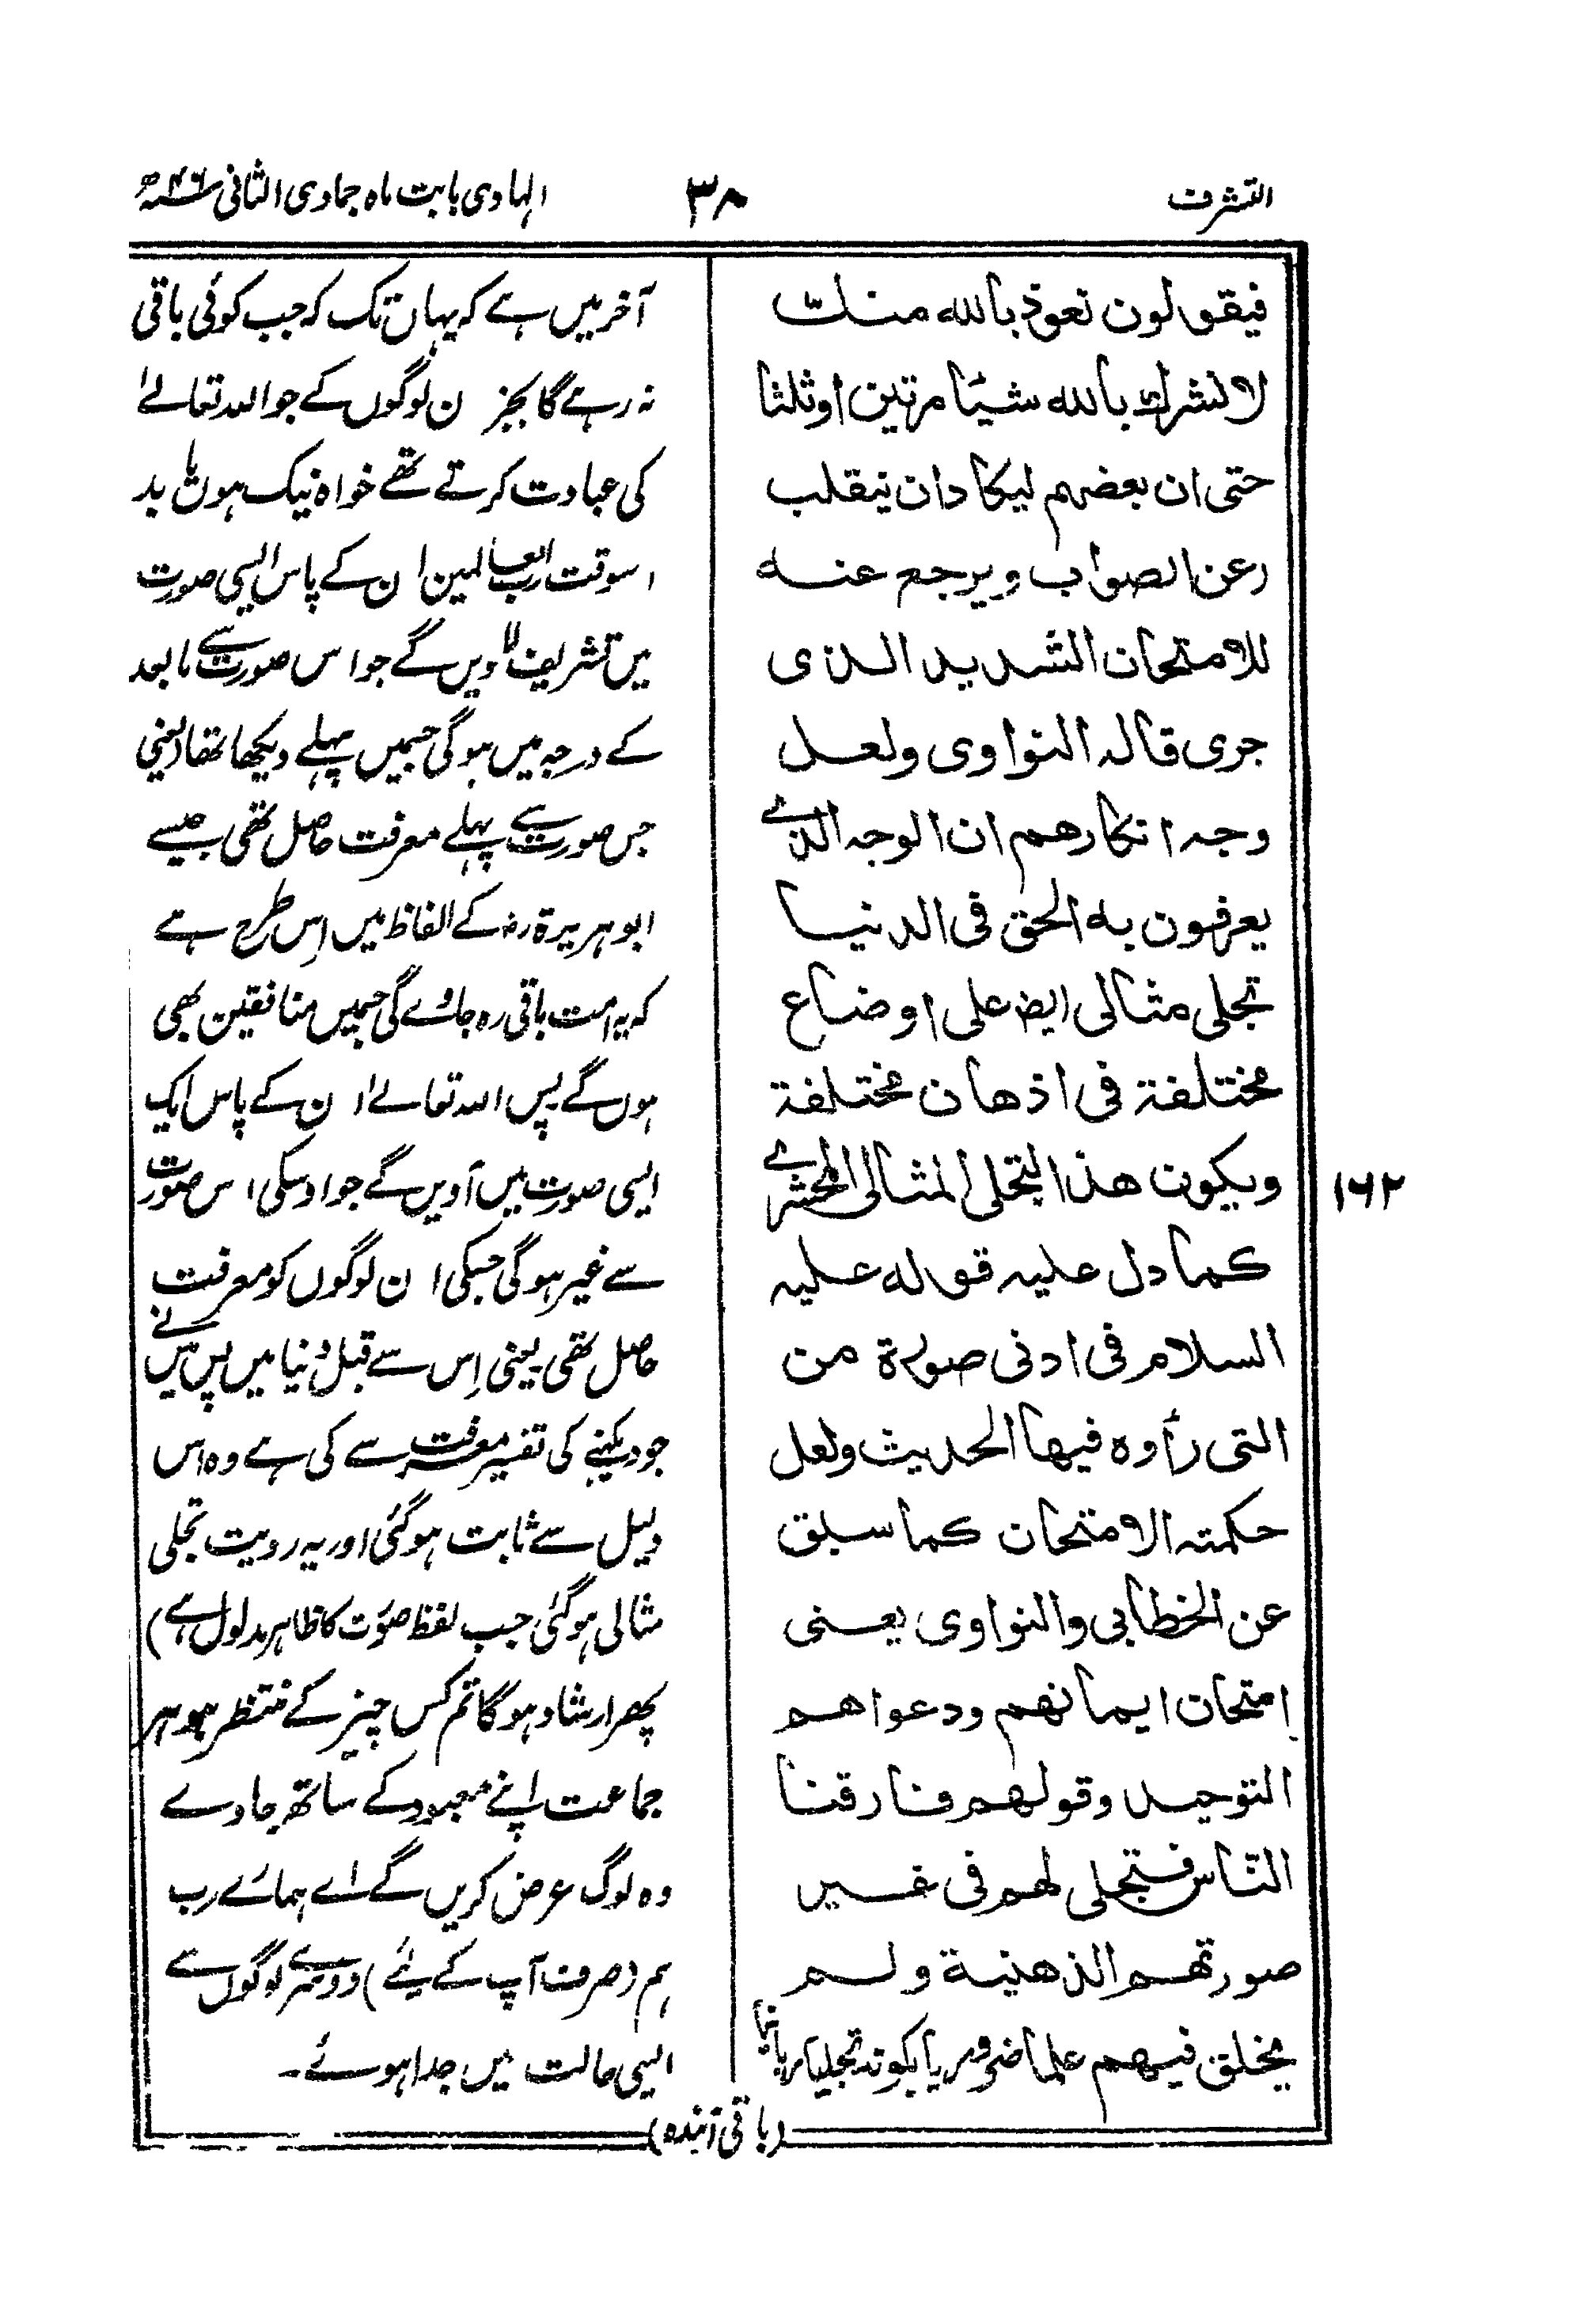 التشرف
۳۸
الہادی بابت ماہ جمادی الثانی ۴۶ھ
فیقولون نعوذ بالله منك
لا نشرك بالله شیئا مرتین او ثلثا
حتی ان بعضهم لیکاد ان ینقلب
(عن الصواب ویرجع عنه
للامتحان الشدید الذی
جری قاله النواوی ولعل
وجه انکارهم ان الوجه الذے
یعرفون به الحق فی الدنیا
تجلی مثالی ایضا علی اوضاع
مختلفة فی اذهان مختلفة
ویکون هذا التجلی المثالی المحشرے
کما دل علیه قوله علیه
السلام فی ادنی صورة من
التی رأوہ فیها الحدیث ولعل
حکمته الامتحان کما سبق
عن الخطابی والنواوی یعنی
امتحان ایمانهم ودعواهم
التوحید وقولهم فارقنا
النّاس فتجلی لهم فی غیر
صورتهم الذهنیة ولم
یخلق فیهم علما ضروریا بکونه تجلیا ربانیا
۱۶۲
آخر میں ہے کہ یہاں تک کہ جب کوئی باقی
نہ رہے گا بجز ان لوگوں کے جو اللہ تعالےٰ
کی عبادت کرتے تھے خواہ نیک ہوں یا بد
اسوقت رب العالمین ان کے پاس ایسی صورت
میں تشریف لاویں گے جو اس صورت سے مابعد
کے درجہ میں ہوگی جسمیں پہلے دیکھا تھا (یعنی
جس صورت سے پہلے معرفت حاصل تھی جیسے
ابو ہریرۃ رضہ کے الفاظ میں اِس طرح ہے
کہ یہ امت باقی رہ جاوے گی جسمیں منافقین بھی
ہوں گے پس اللہ تعالےٰ ان کے پاس ایک
ایسی صورت میں آویں گے جو اوسکی اس صورت
سے غیر ہوگی جسکی ان لوگوں کو معرفت
حاصل تھی یعنی اِس سے قبل دنیا میں پس میں نے
جو دیکہنے کی تفسیر معرفت سے کی ہے وہ اس
دلیل سے ثابت ہوگئی اور یہ رویت تجلی
مثالی ہوگئی جب لفظ صوت کا ظاہر مدلول ہے)
پھر ارشاد ہوگا تم کس چیز کے منتظر ہو ہر
جماعت اپنے معبود کے ساتھ جاوے
وہ لوگ عرض کریں گے اے ہمارے رب
ہم (صرف آپ کے لئے) دوسرے لوگوں سے
ایسی حالت میں جدا ہوئے۔
(باقی آئندہ)